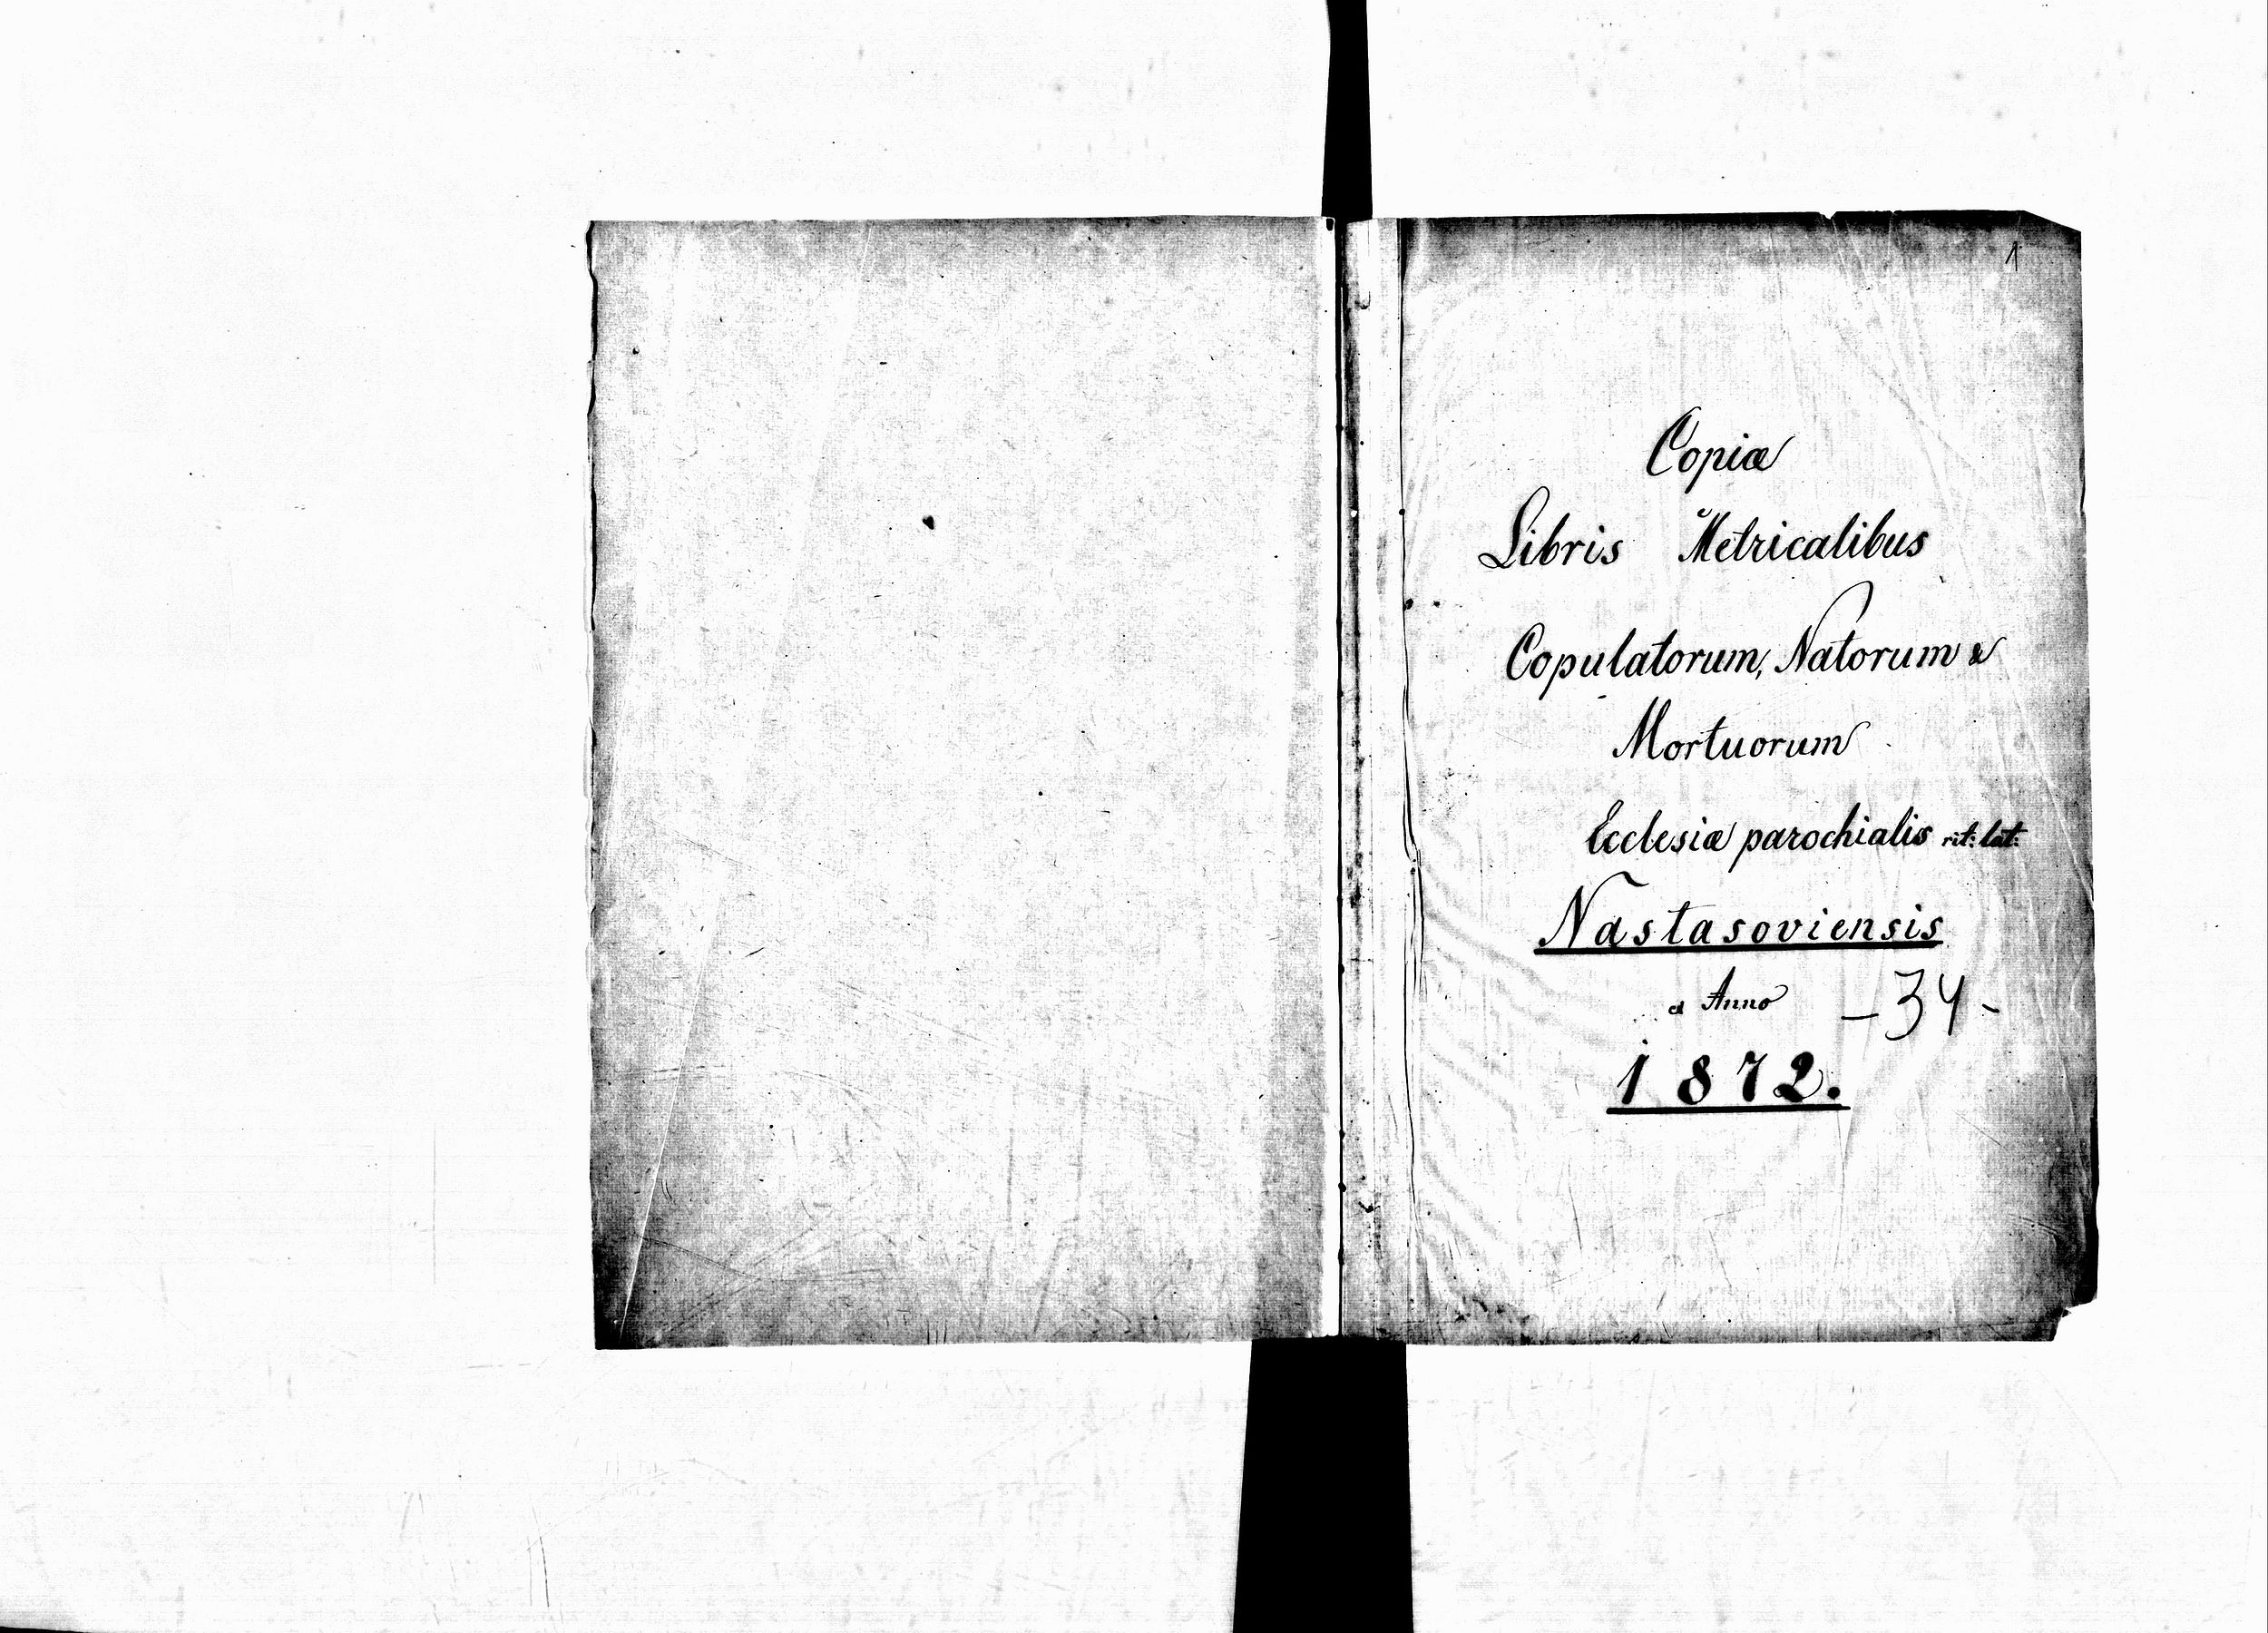 1
Copiæ
Libris Metricalibus
Copulatorum, Natorum &
Mortuorum
Ecclesiæ parochialis rit: lat:
Nastasoviensis
a Anno – 34 -
1872.